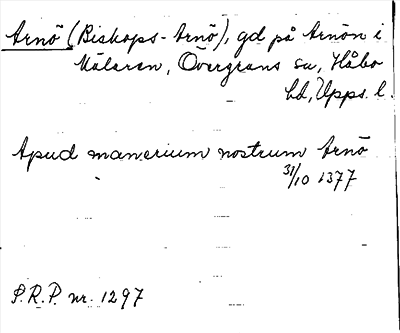 Arnö (Biskops-Arnö), gd på Arnön i
Mälaren, Övergrans sn, Håbo
hd, Upps. l.
Apud manerium nostrum Arnö
31/10 1377
S.R.P. nr. 1297